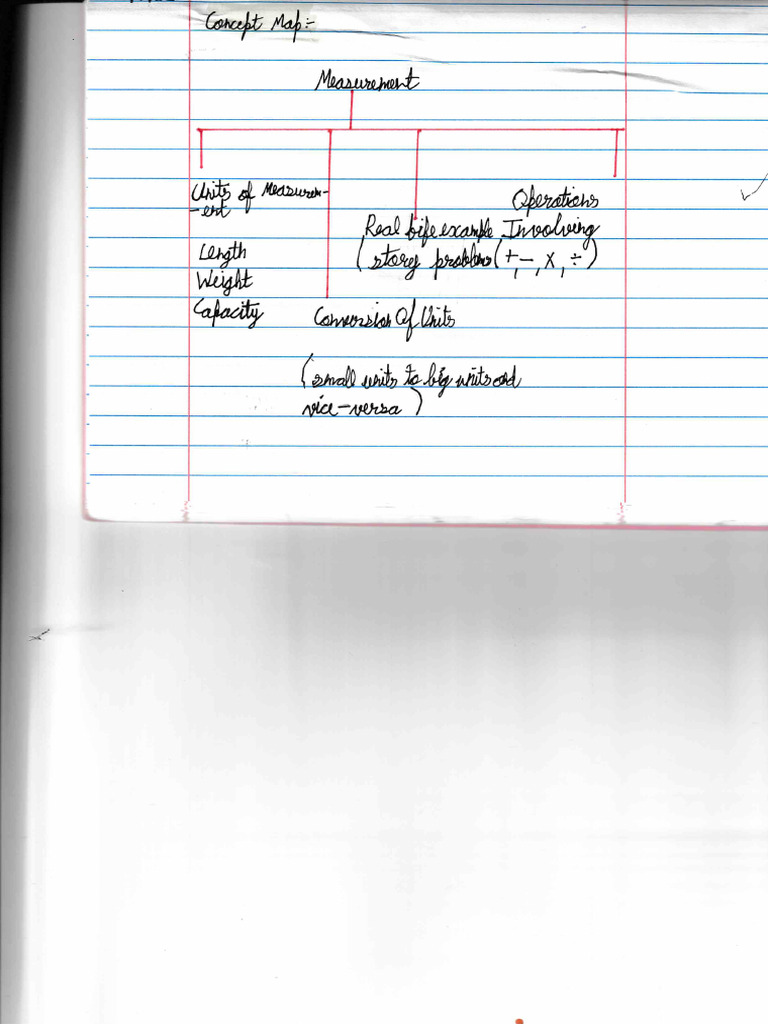 Concept Map:-
Measurement
Units of Measurem-
-ent
Length
Weight
Capacity
Conversion Of Units
(small units to big units and
vice-versa)
Real life example
(story problems)
Operations
Involving
(+, -, x, ÷)